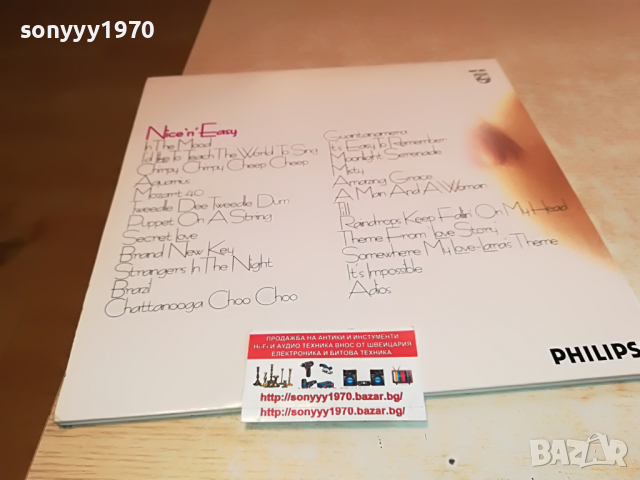 sonyyy1970
Nice 'n' Easy
In The Mood
I'd Like To Teach The World To Sing
Chirpy Chirpy Cheep Cheep
Aquarius
Mozart 40
Tweedle Dee Tweedle Dum
Puppet On A String
Secret Love
Brand New Key
Strangers In The Night
Brazil
Chattanooga Choo Choo
Guantanamera
It's Easy To Remember
Moonlight Serenade
Misty
Amazing Grace
A Man And A Woman
Till
Raindrops Keep Fallin' On My Head
Theme From Love Story
Somewhere My Love-Lara's Theme
It's Impossible
Adios
PHILIPS
ПРОДАЖБА НА АНТИКИ И ИНСТУМЕНТИ
Hi-Fi И АУДИО ТЕХНИКА ВНОС ОТ ШВЕЙЦАРИЯ
ЕЛЕКТРОНИКА И БИТОВА ТЕХНИКА
http://sonyyy1970.bazar.bg/
http://sonyyy1970.bazar.bg/
BAZAR